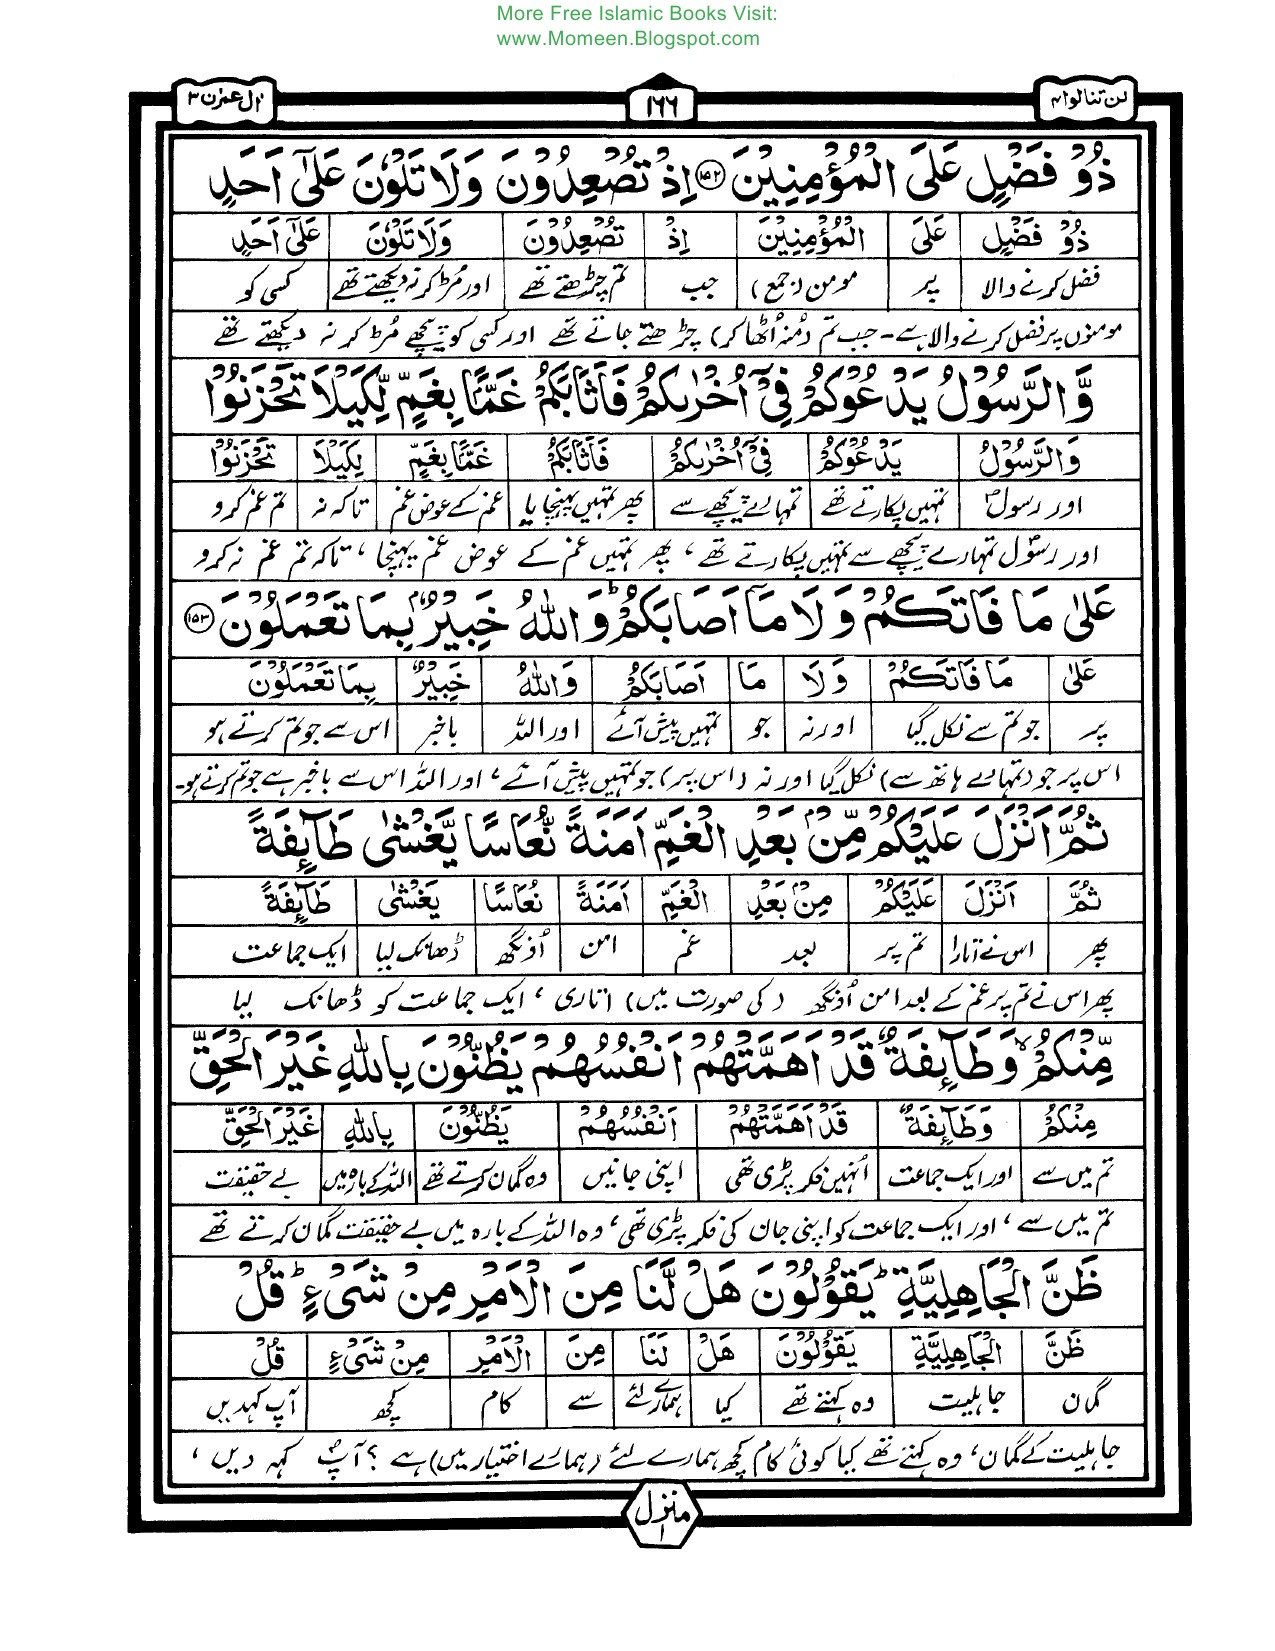 More Free Islamic Books Visit:
www.Momeen.Blogspot.com
لن تنالوا ۴
۱۶۶
اٰل عمرٰن ۳
ذُوْ فَضْلٍ عَلَى الْمُؤْمِنِيْنَ ﴿۱۵۲﴾ اِذْ تُصْعِدُوْنَ وَلَا تَلْوٗنَ عَلٰٓى اَحَدٍ
ذُوْ فَضْلٍ عَلَى الْمُؤْمِنِيْنَ اِذْ تُصْعِدُوْنَ وَلَا تَلْوٗنَ عَلٰٓى اَحَدٍ
فضل کرنے والا پر مومن (جمع) جب تم چڑھتے تھے اور مُڑ کر نہ دیکھتے تھے کسی کو
مومنوں پر فضل کرنے والا ہے۔ جب تم (مُنہ اُٹھا کر) چڑھتے جاتے تھے اور کسی کو پیچھے مُڑ کر نہ دیکھتے تھے
وَّالرَّسُوْلُ يَدْعُوْكُمْ فِيْٓ اُخْرٰىكُمْ فَاَثَابَكُمْ غَمًّۢا بِغَمٍّ لِّكَيْلَا تَحْزَنُوْا
وَالرَّسُوْلُ يَدْعُوْكُمْ فِيْٓ اُخْرٰىكُمْ فَاَثَابَكُمْ غَمًّۢا بِغَمٍّ لِكَيْلَا تَحْزَنُوْا
اور رسولؐ تمہیں پکارتے تھے تمہارے پیچھے سے پھر تمہیں پہنچایا غم کے عوض غم تاکہ نہ تم غم کرو
اور رسولؐ تمہارے پیچھے سے تمہیں پکارتے تھے، پھر تمہیں غم کے عوض غم پہنچا، تاکہ تم غم نہ کرو
عَلٰى مَا فَاتَكُمْ وَلَا مَآ اَصَابَكُمْ ؕ وَاللّٰهُ خَبِيْرٌۢ بِمَا تَعْمَلُوْنَ ﴿۱۵۳﴾
عَلٰى مَا فَاتَكُمْ وَلَا مَا اَصَابَكُمْ وَاللّٰهُ خَبِيْرٌ بِمَا تَعْمَلُوْنَ
پر جو تم سے نکل گیا اور نہ جو تمہیں پیش آئے اور اللہ باخبر اس سے جو تم کرتے ہو
اس پر جو (تمہارے ہاتھ سے) نکل گیا اور نہ (اس پر) جو تمہیں پیش آئے، اور اللہ اس سے باخبر ہے جو تم کرتے ہو۔
ثُمَّ اَنْزَلَ عَلَيْكُمْ مِّنْۢ بَعْدِ الْغَمِّ اَمَنَةً نُّعَاسًا يَّغْشٰى طَآئِفَةً
ثُمَّ اَنْزَلَ عَلَيْكُمْ مِنْۢ بَعْدِ الْغَمِّ اَمَنَةً نُعَاسًا يَغْشٰى طَآئِفَةً
پھر اس نے اتارا تم پر بعد غم امن اُونگھ ڈھانک لیا ایک جماعت
پھر اس نے تم پر غم کے بعد امن اُونگھ (کی صورت میں) اتاری، ایک جماعت کو ڈھانک لیا
مِّنْكُمْ ۙ وَطَآئِفَةٌ قَدْ اَهَمَّتْهُمْ اَنْفُسُهُمْ يَظُنُّوْنَ بِاللّٰهِ غَيْرَ الْحَقِّ
مِنْكُمْ وَطَآئِفَةٌ قَدْ اَهَمَّتْهُمْ اَنْفُسُهُمْ يَظُنُّوْنَ بِاللّٰهِ غَيْرَ الْحَقِّ
تم میں سے اور ایک جماعت اُنہیں فکر پڑی تھی اپنی جانیں وہ گمان کرتے تھے اللہ کے بارہ میں بے حقیقت
تم میں سے، اور ایک جماعت کو اپنی جان کی فکر پڑی تھی، وہ اللہ کے بارہ میں بے حقیقت گمان کرتے تھے
ظَنَّ الْجَاهِلِيَّةِ ؕ يَقُوْلُوْنَ هَلْ لَّنَا مِنَ الْاَمْرِ مِنْ شَیْءٍ ؕ قُلْ
ظَنَّ الْجَاهِلِيَّةِ يَقُوْلُوْنَ هَلْ لَنَا مِنَ الْاَمْرِ مِنْ شَیْءٍ قُلْ
گمان جاہلیت وہ کہتے تھے کیا ہمارے لئے سے کام کچھ آپ کہدیں
جاہلیت کے گمان، وہ کہتے تھے کیا کوئی کام کچھ ہمارے لئے (ہمارے اختیار میں) ہے؟ آپؐ کہہ دیں،
منزل ۱